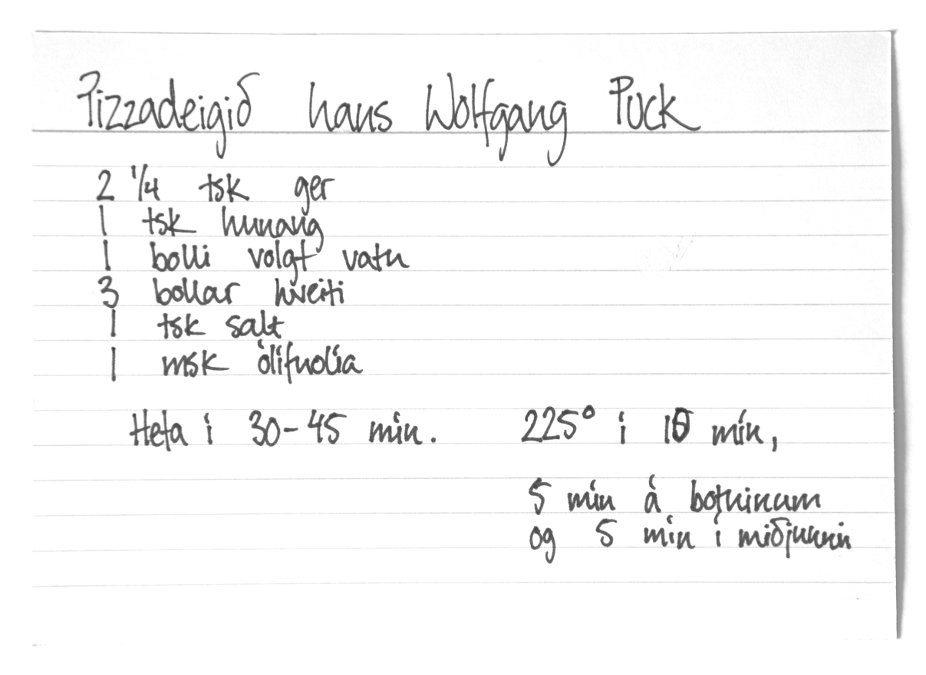 Pizzadeigið hans Wolfgang Puck
2 1/4 tsk ger
1 tsk hunang
1 bolli volgt vatn
3 bollar hveiti
1 tsk salt
1 msk ólífuolía
Hefa í 30-45 mín.
225° í 10 mín,
5 mín á botninum
og 5 mín í miðjunni